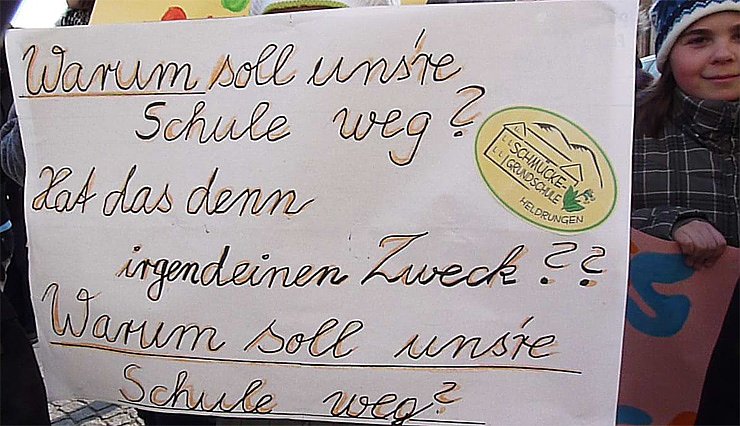 Warum soll uns're
Schule weg?
Hat das denn
irgendeinen Zweck??
Warum soll uns're
Schule weg?
SCHMÜCKE-
GRUNDSCHULE
HELDRUNGEN